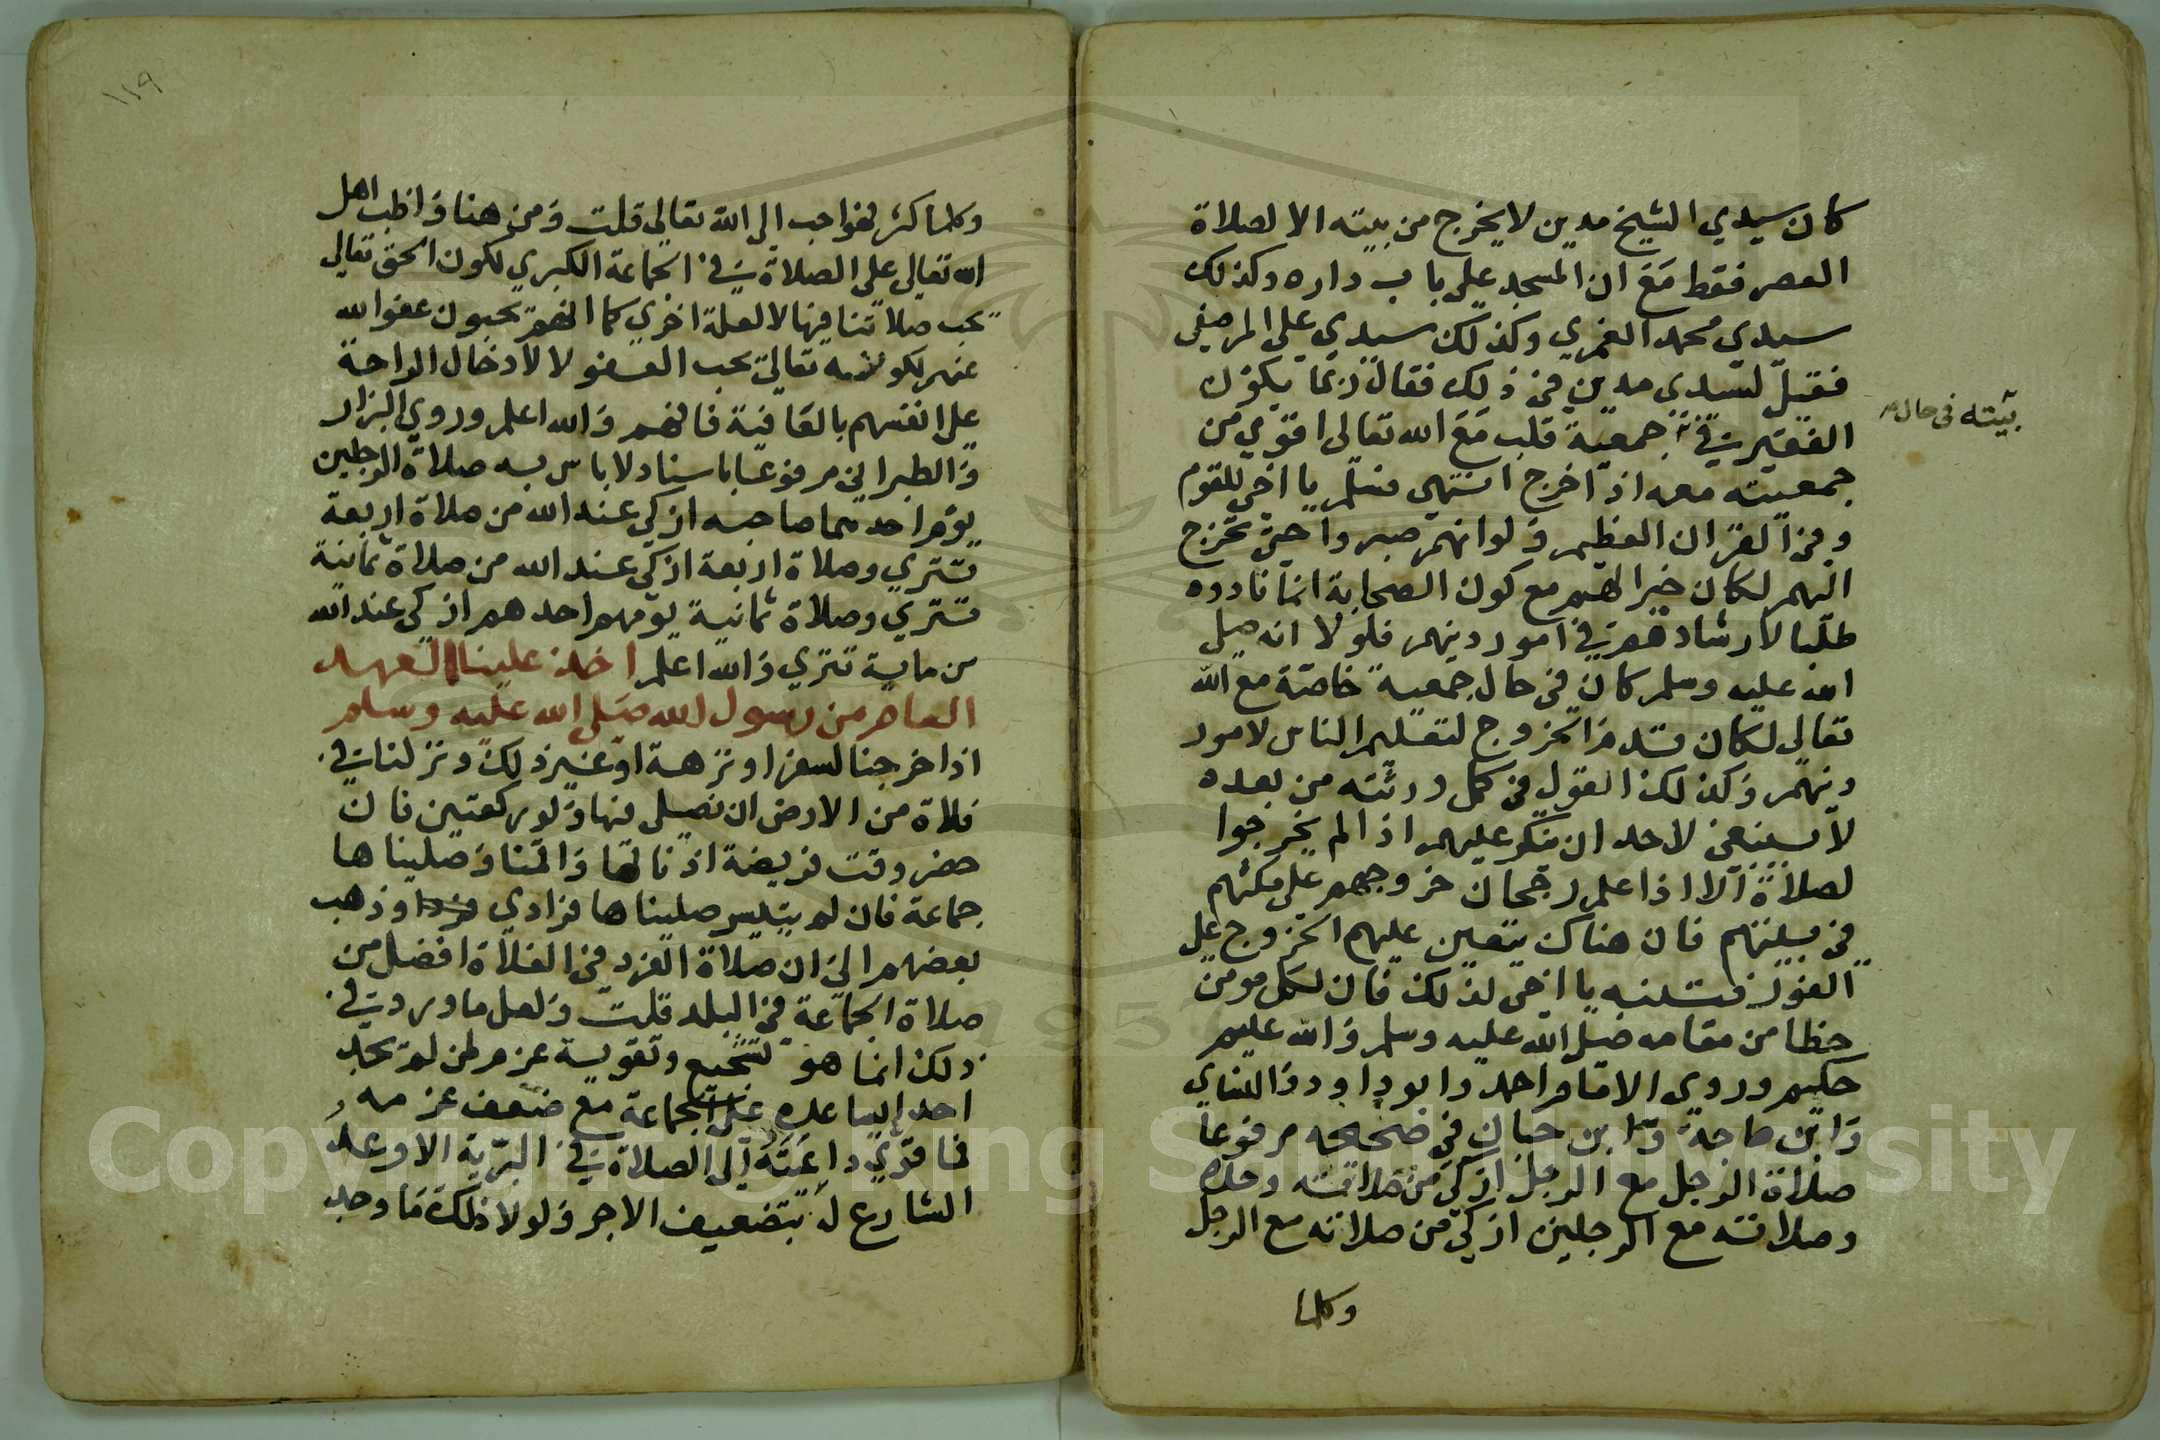 كان سيدي الشيخ مدين لا يخرج من بيته الا لصلاة
العصر فقط مع ان المسجد على باب داره وكذلك
سيدي محمد الغمري وكذلك سيدي علي المرصفي
فقيل لسيدي مدين في ذلك فقال ربما يكون
الفقير في جمعية قلب مع الله تعالى اقوي من
بيته في حال
جمعيته معه اذا خرج انتهى فسلم يا اخي للقوم
وفي القران العظيم ولو انهم صبروا حتى تخرج
اليهم لكان خيرا لهم مع كون الصحابة انما نادوه
طلبا لارشادهم في امور دينهم فلولا انه صلى
الله عليه وسلم كان في حال جمعية خاصة مع الله
تعالى لكان قدم الخروج لتعليم الناس لامور
دينهم وكذلك القول في كمل ورثته من بعده
لا ينبغي لاحد ان ينكر عليهم اذا لم يخرجوا
لصلاة الا اذا علم رجحان خروجهم على مكثهم
في بيتهم فان هناك يتعين عليهم الخروج على
الفور فتنبه يا اخي لذلك فان لكل مومن
حظا من مقامه صلى الله عليه وسلم والله عليم
حكيم وروى الامام احمد وابو داود والنساي
وابن ماجة وابن حبان في صحيحه مرفوعا
صلاة الرجل مع الرجل ازكى من صلاته وحده
وصلاته مع الرجلين ازكى من صلاته مع الرجل
وكلما
١١٩
وكلما كثر فهو احب الى الله تعالى قلت ومن هنا واظب اهل
الله تعالى على الصلاة في الجماعة الكبري لكون الحق تعالى
يحب صلاتنا فيها لا لعلة اخري كما انهم يحبون عفو الله
عنهم لكونه تعالى يحب العفو لا لادخال الراحة
على انفسهم بالعافية فافهم والله اعلم وروي البزار
والطبراني مرفوعا باسناد لا باس به صلاة الرجلين
يوم احدهما صاحبه ازكى عند الله من صلاة اربعة
تتري وصلاة اربعة ازكى عند الله من صلاة ثمانية
تتري وصلاة ثمانية يومهم احدهم ازكى عند الله
من ماية تتري والله اعلم اخذ علينا العهد
العام من رسول الله صلى الله عليه وسلم
اذا خرجنا لسفر او نزهة او غير ذلك ونزلنا في
فلاة من الارض ان نصلي فيها ولو ركعتين فان
حضر وقت فريضة اذنا لها واقمنا وصلينا ها
جماعة فان لم يتيسر صلينا ها فرادي وذهب
بعضهم الى ان صلاة الفرد في الفلاة افضل من
صلاة الجماعة في البلد قلت ولعل ما ورد في
ذلك انما هو لتشجيع وتقوية عزم من لم يجد
احدا يساعده على الجماعة مع ضعف عزمه
فما قوي داعيته الى الصلاة في البرية الا وعد
الشارع له بتضعيف الاجر ولولا ذلك ما وجد
Copyright © King Saud University
1957